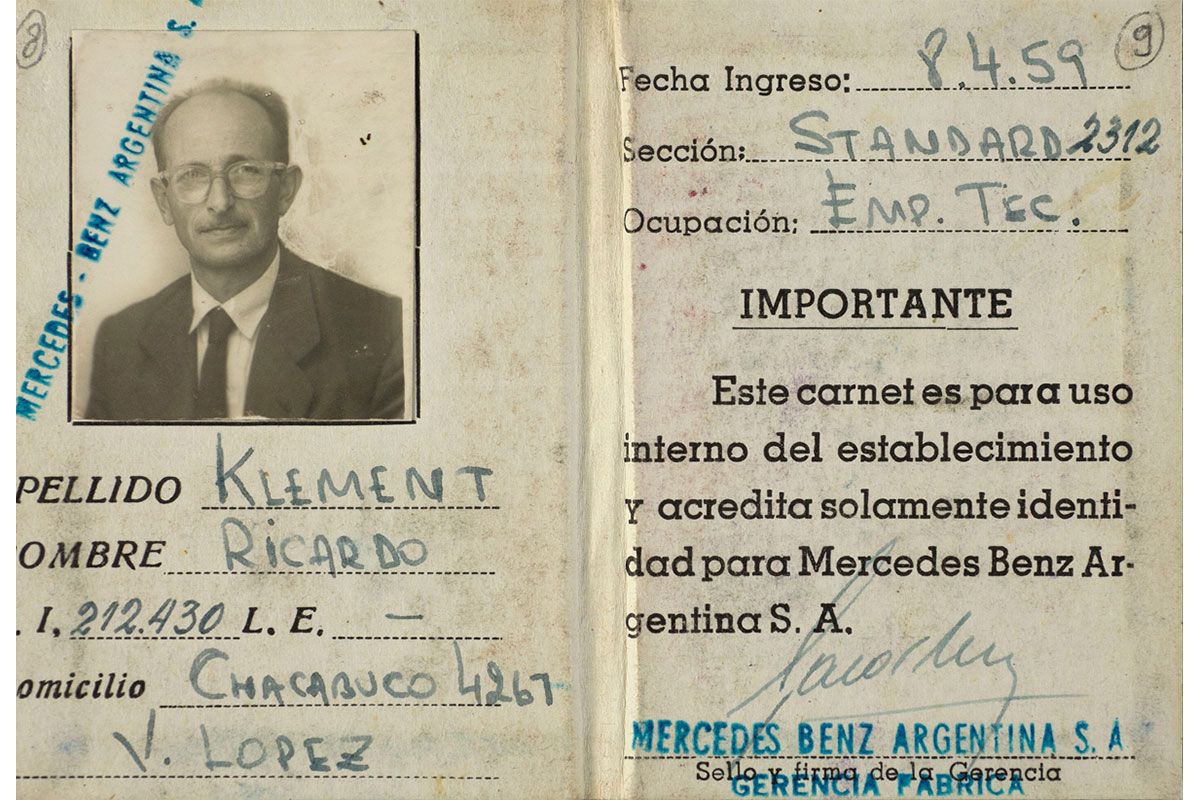 8
MERCEDES - BENZ ARGENTINA S.
PELLIDO KLEMENT
OMBRE RICARDO
. I, 212.430 L. E. —
omicilio CHACABUCO 4267
V. LOPEZ
9
Fecha Ingreso: 8.4.59
Sección: STANDARD 2312
Ocupación: EMP. TEC.
IMPORTANTE
Este carnet es para uso
interno del establecimiento
y acredita solamente identi-
dad para Mercedes Benz Ar-
gentina S. A.
MERCEDES BENZ ARGENTINA S. A
Sello y firma de la Gerencia
GERENCIA FABRICA